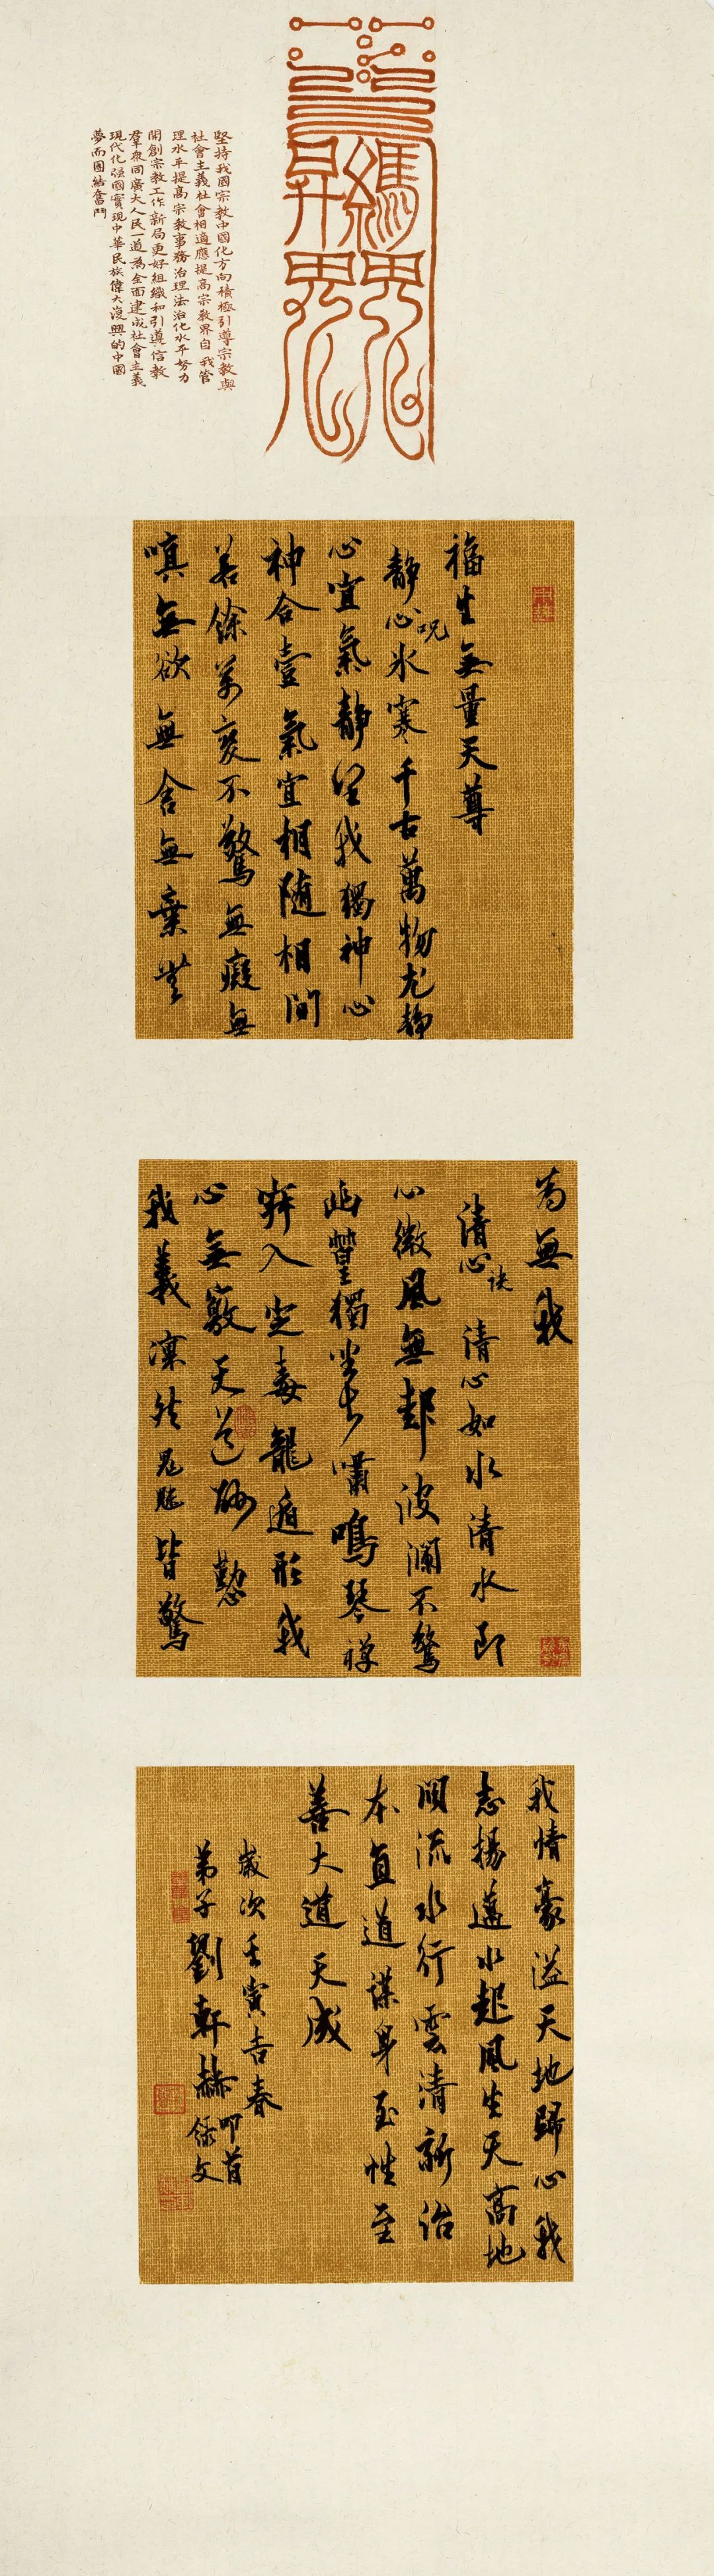 堅持我國宗教中國化方向積極引導宗教與
社會主義社會相適應提高宗教界自我管
理水平提高宗教事務治理法治化水平努力
開創宗教工作新局更好組織和引導信教
羣衆同廣大人民一道為全面建成社會主義
現代化強國實現中華民族偉大復興的中國
夢而團結奮鬥
福生無量天尊
靜心咒 冰寒千古萬物尤靜
心宜氣靜望我獨神心
神合壹氣宜相随相間
若餘萬變不驚無癡無
嗔無欲無舍無棄無
為無我
清心訣 清心如水清水即
心微風無起波瀾不驚
幽篁獨坐長嘯鳴琴禪
寂入定毒龍遁形我
心無竅天道酬勤
我義凜然鬼魅皆驚
我情豪溢天地歸心我
志揚邁水起風生天高地
闊流水行雲清新治
本直道謀身至性至
善大道天成
歲次壬寅吉春
弟子劉軒赫叩首
錄文